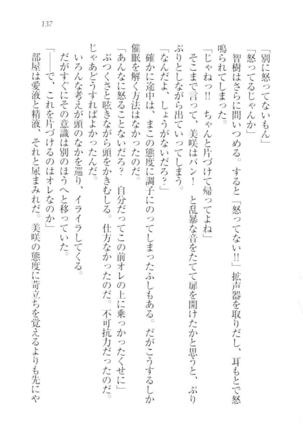 137
「別に怒ってないもん」
「怒ってるじゃんか」
智樹はさらに問いつめる。すると「怒ってない!!」拡声器を取りだし、耳もとで怒
鳴られてしまった。
「じゃねっ!! ちゃんと片づけて帰ってよね」
そこまで言って、美咲はバン! と乱暴な音をたてて扉を開けたかと思うと、ぷり
ぷりとしながら出ていってしまう。
「なんだよ、しょうがないだろ?」
確かに途中は、まこの態度に調子にのってしまったふしもある。だがこうするしか
催眠を解く方法はなかったのだ。
「あんなに怒ることないだろ? 自分だってこの前オレの上に乗っかったくせに」
ぶつくさと呟きながら頭をかきむしる。仕方なかったのだ。不可抗力だったのだ。
じゃあどうすればよかったんだ。
いろんな考えが頭のなかを巡り、イライラしてくる。
だがすぐにその意識は別のほうへと移っていた。
「――で、これを片づけるのはオレなのか?」
部屋は愛液と精液、それと尿まみれだ。美咲の態度に苛立ちを覚えるよりも先にや